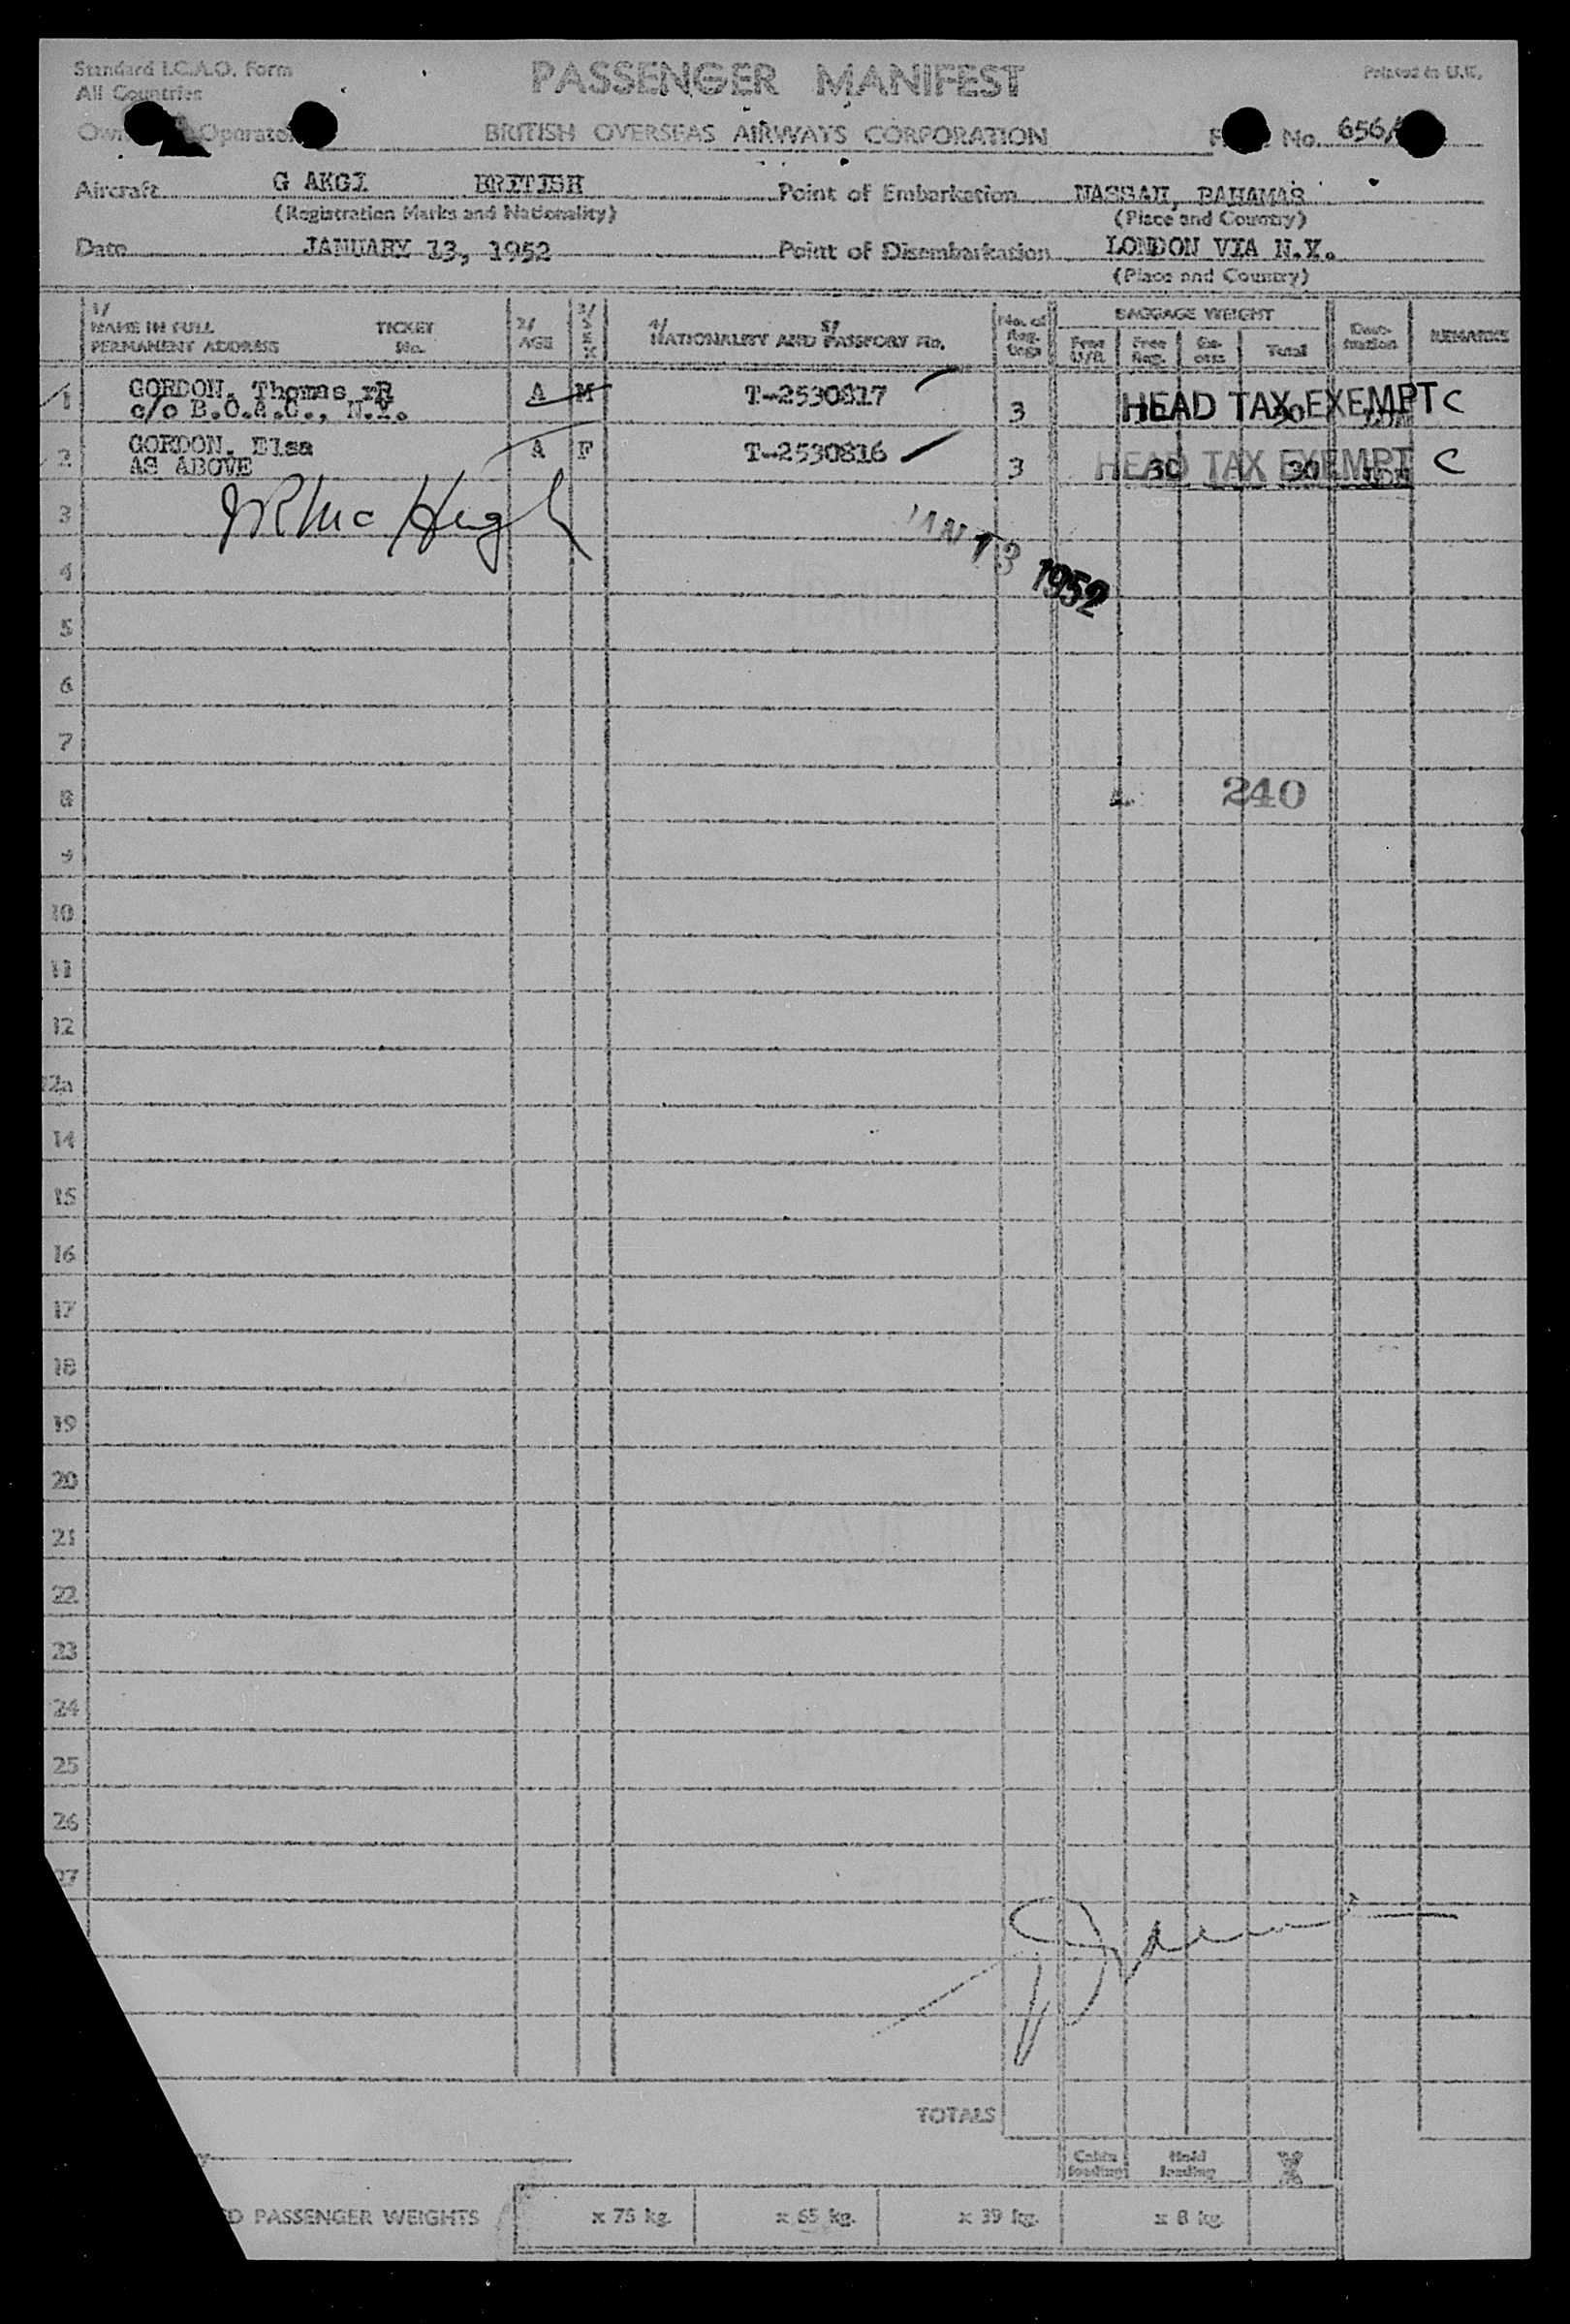 Standard I.C.A.O. Form
All Countries
PASSENGER MANIFEST
Printed in U.K.
BRITISH OVERSEAS AIRWAYS CORPORATION
No. 656/
Aircraft G AKGI BRITISH
(Registration Marks and Nationality)
Point of Embarkation NASSAU, BAHAMAS
(Place and Country)
Date JANUARY 13, 1952
Point of Disembarkation LONDON VIA N.Y.
(Place and Country)
1/ NAME IN FULL PERMANENT ADDRESS TICKET No. 2/ AGE 3/ SEX 4/ 5/ NATIONALITY AND PASSPORT No. No. of Reg. BAGGAGE WEIGHT Free Free Reg. Ex-cess Total Dest-ination REMARKS
1 GORDON, Thomas A M T-2530817 3 HEAD TAX EXEMPT C
c/o B.O.A.C., N.Y.
2 GORDON, Elsa A F T-2530816 3 30 30 HEAD TAX EXEMPT C
AS ABOVE
3
JAN 13 1952
4
5
6
7
8 240
9
10
11
12
12a
14
15
16
17
18
19
20
21
22
23
24
25
26
27
TOTALS
Cabin loading Hold loading
PASSENGER WEIGHTS x 75 kg. x 65 kg. x 39 kg. x 8 kg.